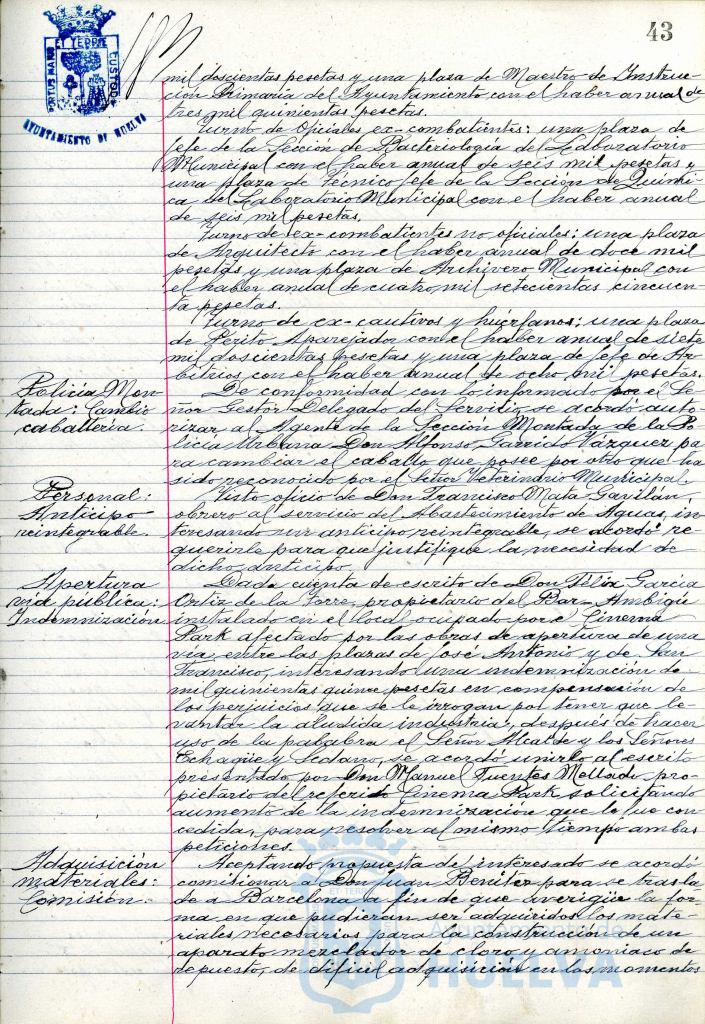 43
PORTUS MARIS ET TERRE CUSTODIA
AYUNTAMIENTO DE HUELVA
mil doscientas pesetas y una plaza de Maestro de Instruc-
ción Primaria del Ayuntamiento con el haber anual de
tres mil quinientas pesetas.
Turno de Oficiales ex-combatientes: una plaza de
Jefe de la Sección de Bacteriología del Laboratorio
Municipal con el haber anual de seis mil pesetas y
una plaza de Técnico Jefe de la Sección de Quími-
ca del Laboratorio Municipal con el haber anual
de seis mil pesetas.
Turno de ex-combatientes no oficiales: una plaza
de Arquitecto con el haber anual de doce mil
pesetas y una plaza de Archivero Municipal con
el haber anual de cuatro mil setecientas cincuen-
ta pesetas.
Turno de ex-cautivos y huérfanos: una plaza
de Perito Aparejador con el haber anual de siete
mil doscientas pesetas y una plaza de Jefe de Ar-
bitrios con el haber anual de ocho mil pesetas.
Policía Mon-
tada: Cambio
caballería.
De conformidad con lo informado por el Se-
ñor Gestor Delegado del Servicio, se acordó auto-
rizar al Agente de la Sección Montada de la Po-
licía Urbana Don Alfonso Garrido Vázquez pa-
ra cambiar el caballo que posee por otro que ha
sido reconocido por el Señor Veterinario Municipal.
Personal:
Anticipo
reintegrable.
Visto oficio de Don Francisco Mata Gavilán,
obrero al servicio del Abastecimiento de Aguas, in-
teresando un anticipo reintegrable, se acordó re-
querirle para que justifique la necesidad de
dicho anticipo.
Apertura
vía pública:
Indemnización
Dada cuenta de escrito de Don Félix García
Ortiz de la Torre, propietario del Bar-Ambigú
instalado en el local ocupado por el Cinema
Park afectado por las obras de apertura de una
vía entre las plazas de José Antonio y de San
Francisco, interesando una indemnización de
mil quinientas quince pesetas en compensación de
los perjuicios que se le irrogan por tener que le-
vantar la aludida industria, después de hacer
uso de la palabra el Señor Alcalde y los Señores
Echagüe y Seolano, se acordó unirlo al escrito
presentado por Don Manuel Fuentes Mellado, pro-
pietario del referido Cinema Park solicitando
aumento de la indemnización que le fue con-
cedida, para resolver al mismo tiempo ambas
peticiones.
Adquisición
materiales:
Comisión.
Aceptando propuesta de interesado se acordó
comisionar a Don Juan Benítez para se trasla-
de a Barcelona a fin de que averigüe la for-
ma en que pudieran ser adquiridos los mate-
riales necesarios para la construcción de un
aparato mezclador de cloro y amoniaco de
repuesto, de difícil adquisición en los momentos
Ayuntamiento de
HUELVA